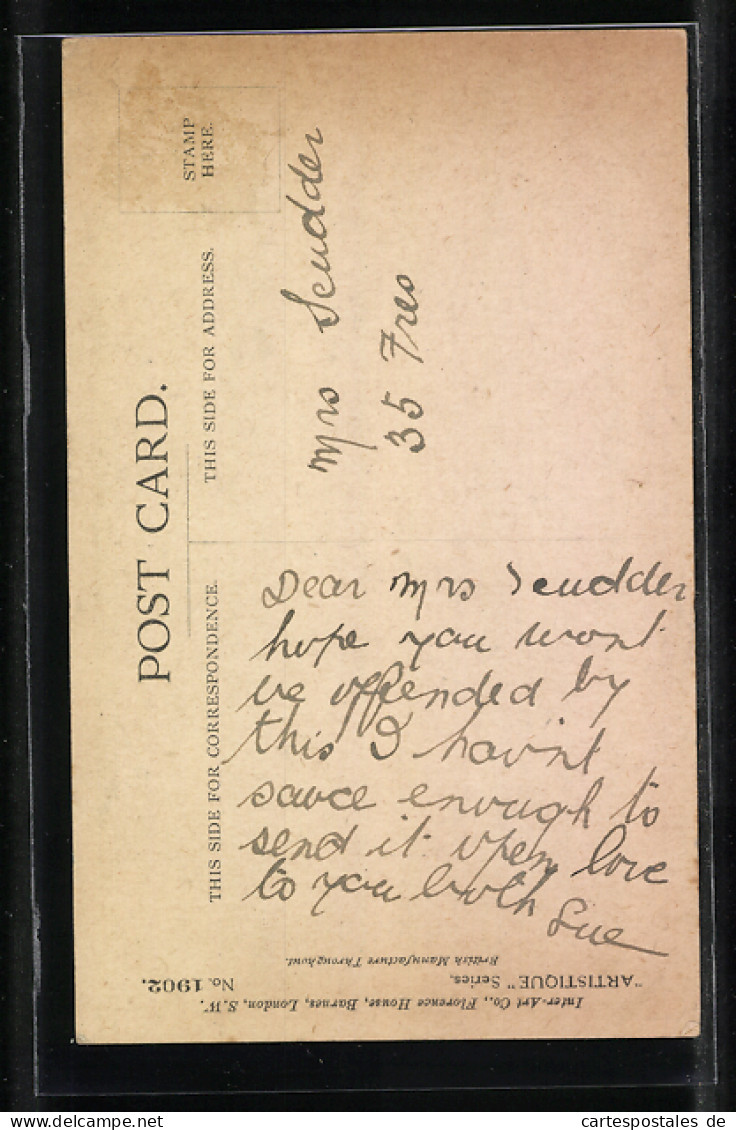 POST CARD.
THIS SIDE FOR CORRESPONDENCE.
THIS SIDE FOR ADDRESS.
STAMP
HERE.
Mrs Scudder
35 Fres
Dear Mrs Scudder
hope you wont
be offended by
this I havint
sauce enough to
send it open love
to you both
Sue
Inter-Art Co., Florence House, Barnes, London, S.W.
"ARTISTIQUE" Series.
No. 1902.
British Manufacture Throughout.
cartespostales de